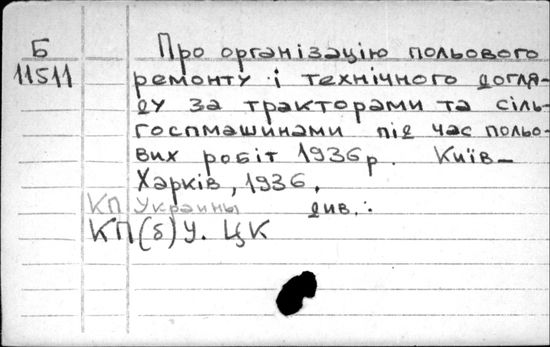 Б Про організацію польового
11511 ремонту і технічного догля-
ду за тракторами та сіль-
госпмашинами під час польо-
вих робіт 1936 р. Київ-
Харків, 1936.
КП Украины див.:
КП(б)У. ЦК